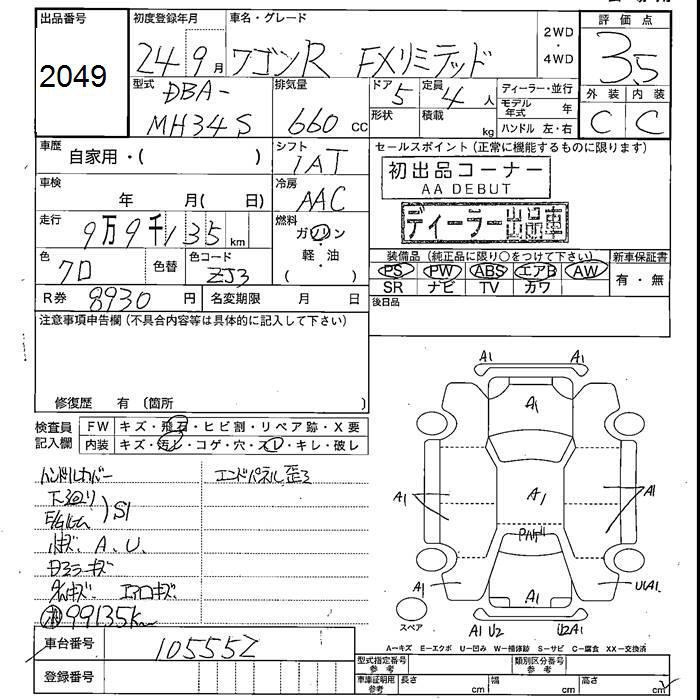 出品番号
2049
初度登録年月
24 9月
車名・グレード
ワゴンR FXリミテッド
2WD
・
4WD
評価点
3.5
外装 内装
C C
型式
DBA-
MH34S
排気量
660 cc
ドア
5
定員
4人
形状
積載
kg
ディーラー・並行
モデル年式 年
ハンドル 左・右
車歴
自家用・( )
シフト
IAT
セールスポイント(正常に機能するものに限ります)
初出品コーナー
AA DEBUT
ディーラー出品車
車検
年 月( 日)
冷房
AAC
走行
9万9千135km
燃料
ガソリン
・
軽・油
( )
色
クロ
色替
色コード
ZJ3
装備品(純正品に限り○をつけて下さい)
PS PW ABS エアB AW
SR ナビ TV カワ
新車保証書
有・無
R券 8930円
名変期限 月 日
後日品
注意事項申告欄(不具合内容等は具体的に記入して下さい)
修復歴 有(箇所
検査員
記入欄
FW キズ・飛石・ヒビ割・リペア跡・X要
内装 キズ・汚レ・コゲ・穴・スレ・キレ・破レ
ハンドルカバー
エンドパネル歪ミ
下回り
E/Gルーム
S1
小キズ、A、U、
ダッシュキズ エアロキズ
99135km
A1 A1
A1
A1 A1 A1
A1 A1 U1A1
A1 U2 U2A1
スペア
A−キズ E−エクボ U−凹み W−補修跡 S−サビ C−腐食 XX−交換済
車台番号
105552
登録番号
型式指定番号
参考
類別区分番号
参考
車庫証明用
参考
長さ cm 幅 cm 高さ cm